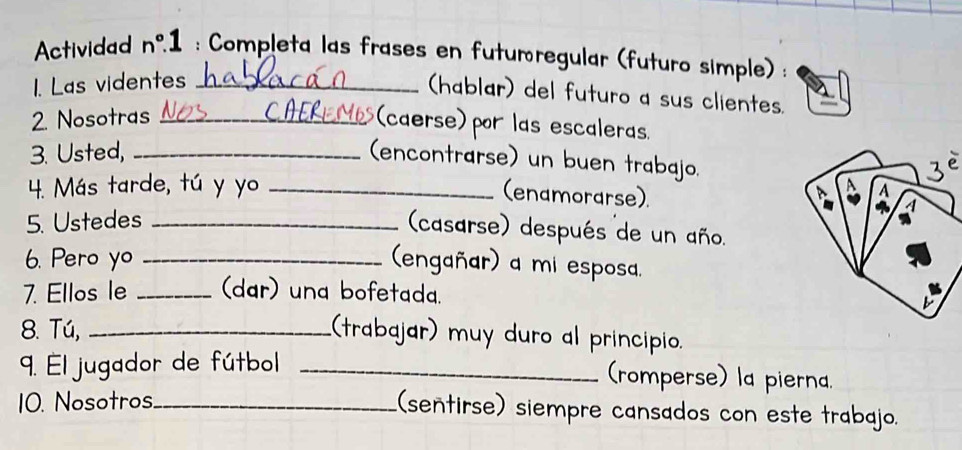 Actividad nº.1 : Completa las frases en futuroregular (futuro simple) :
1. Las videntes hablacán (hablar) del futuro a sus clientes.
2. Nosotras NOS CAEREMOS (caerse) por las escaleras.
3. Usted, ____________ (encontrarse) un buen trabajo.
4. Más tarde, tú y yo ____________ (enamorarse).
5. Ustedes ____________ (casarse) después de un año.
6. Pero yo ____________ (engañar) a mi esposa.
7. Ellos le ______ (dar) una bofetada.
8. Tú, ____________ (trabajar) muy duro al principio.
9. El jugador de fútbol ____________ (romperse) la pierna.
10. Nosotros____________ (sentirse) siempre cansados con este trabajo.
3è
A A A A
A